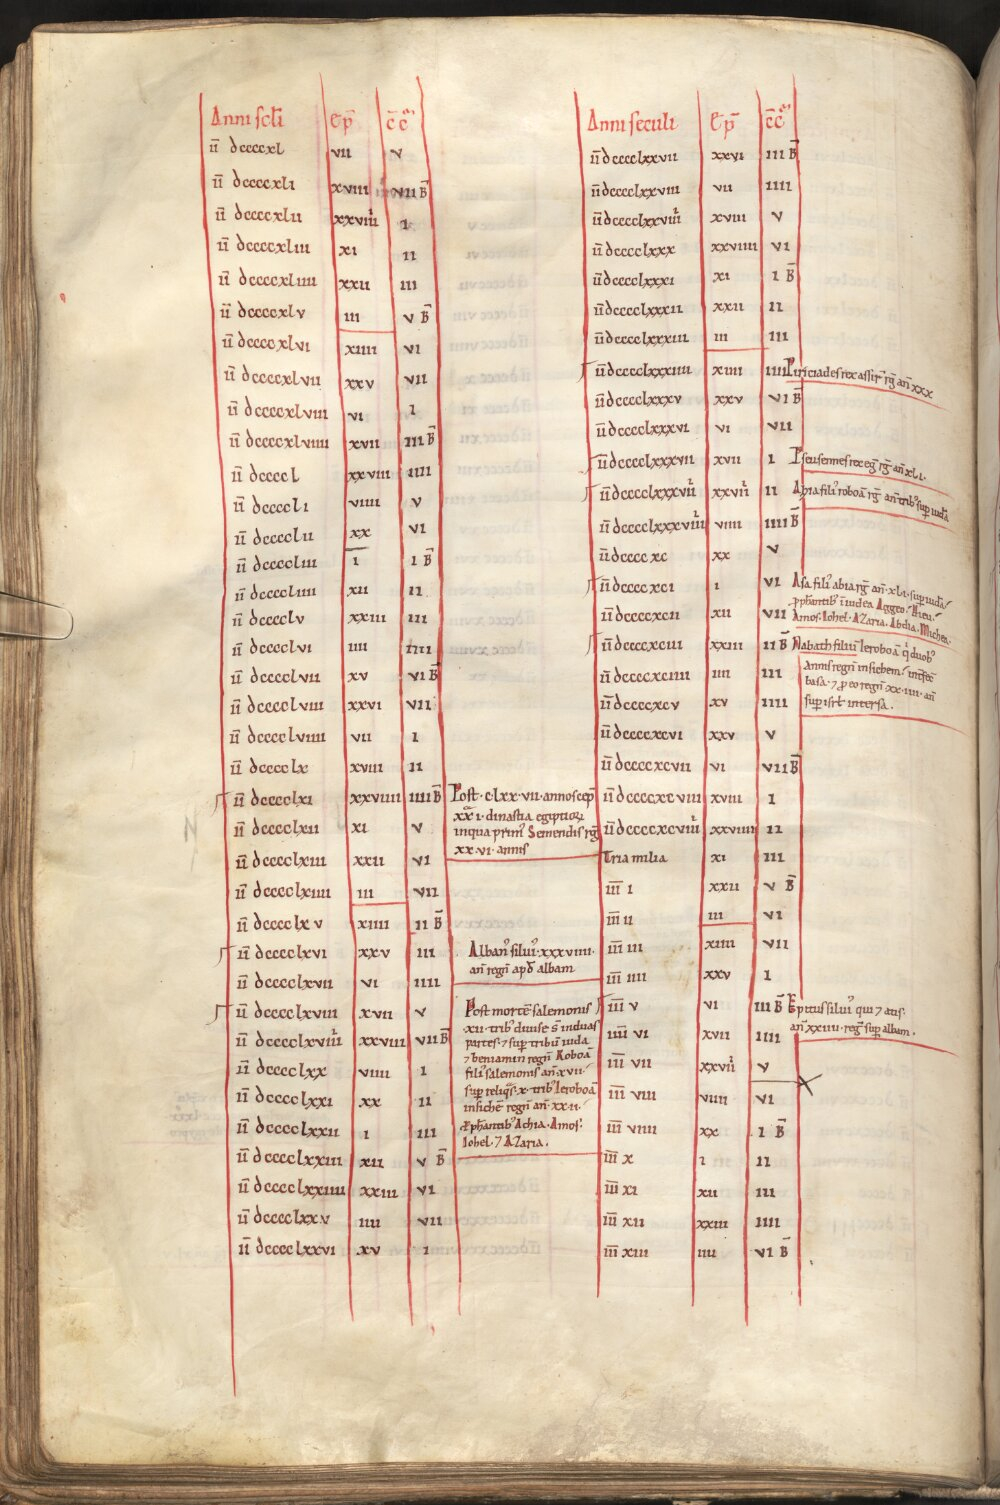 Anni scli ep̄ c̄c̄
ii̅ dccccxl vii v
ii̅ dccccxli xviii vii B̄
ii̅ dccccxlii xxviiii i
ii̅ dccccxliii xi ii
ii̅ dccccxliiii xxii iii
ii̅ dccccxlv iii v B̄
ii̅ dccccxlvi xiiii vi
ii̅ dccccxlvii xxv vii
ii̅ dccccxlviii vi i
ii̅ dccccxlviiii xvii iii B̄
ii̅ dccccl xxviii iiii
ii̅ dccccli viiii v
ii̅ dcccclii xx vi
ii̅ dccccliii i i B̄
ii̅ dccccliiii xii ii
ii̅ dcccclv xxiii iii
ii̅ dcccclvi iiii iiii
ii̅ dcccclvii xv vi B̄
ii̅ dcccclviii xxvi vii
ii̅ dcccclviiii vii i
ii̅ dcccclx xviii ii
ii̅ dcccclxi xxviiii iiii B̄
ii̅ dcccclxii xi v
ii̅ dcccclxiii xxii vi
ii̅ dcccclxiiii iii vii
ii̅ dcccclxv xiiii ii B̄
ii̅ dcccclxvi xxv iii
ii̅ dcccclxvii vi iiii
ii̅ dcccclxviii xvii v
ii̅ dcccclxviiii xxviii vii B̄
ii̅ dcccclxx viiii i
ii̅ dcccclxxi xx ii
ii̅ dcccclxxii i iii
ii̅ dcccclxxiii xii v B̄
ii̅ dcccclxxiiii xxiii vi
ii̅ dcccclxxv iiii vii
ii̅ dcccclxxvi xv i
Post · c·lxx·vii· annos cep̄
xx·i· dinastia egiptioꝝ
in qua prim᾽ Semendis rḡ
xx·vi· annis
Alban᾽ silui᾽ xxxviiii·
an̄ regn̄ apd̄ albam
Post mortē salemonis
xii· trib᾽ diuise s̄ in duas
partes· ⁊ sup̄ tribū iuda
⁊ beniamin regn̄ Roboā
fili᾽ salemonis an̄·xvii·
sup̄ reliq̄s·x·trib᾽ Ieroboā
in sichē regn̄ an̄·xx·ii·
ꝓphantib᾽ Achia· Amos·
Iohel· ⁊ Azaria·
Anni seculi ep̄ c̄c̄
ii̅ dcccclxxvii xxvi iii B̄
ii̅ dcccclxxviii vii iiii
ii̅ dcccclxxviiii xviii v
ii̅ dcccclxxx xxviiii vi
ii̅ dcccclxxxi xi i B̄
ii̅ dcccclxxxii xxii ii
ii̅ dcccclxxxiii iii iii
ii̅ dcccclxxxiiii xiiii iiii Piriciades rex assir᾽ rḡ an̄ xxx
ii̅ dcccclxxxv xxv vi B̄
ii̅ dcccclxxxvi vi vii
ii̅ dcccclxxxvii xvii i Pseusennes rex eḡ rḡ an̄ xli·
ii̅ dcccclxxxviii xxviii ii Abia fili᾽ roboā rḡ an̄ trib᾽ sup̄ iudā
ii̅ dcccclxxxviiii viiii iiii B̄
ii̅ dccccxc xx v
ii̅ dccccxci i vi Asa fili᾽ abia rḡ an̄·xli·sup̄ iudā
ꝓphantib᾽ ī iudea Aggeo· Hieu·
Amos· Iohel· Azaria· Abdia· Michea·
ii̅ dccccxcii xii vii
ii̅ dccccxciii xxiii ii B̄ Nabath filiu᾽ Ieroboā q̄ duob᾽
annis regn̄ in sichem· int̄fec̄
basa· ⁊ ꝓ eo regn̄ xx·iiii·an̄
sup̄ isrl̄ in tersa·
ii̅ dccccxciiii iiii iii
ii̅ dccccxcv xv iiii
ii̅ dccccxcvi xxv v
ii̅ dccccxcvii vi vii B̄
ii̅ dccccxcviii xviii i
ii̅ dccccxcviiii xxviiii ii
Tria milia xi iii
iii̅ i xxii v B̄
iii̅ ii iii vi
iii̅ iii xiiii vii
iii̅ iiii xxv i
iii̅ v vi iii B̄ Epitus silui᾽ qui ⁊ atis·
an̄ xxiiii· regn̄ sup̄ albam·
iiii̅ vi xvii iiii
iii̅ vii xxviii v
iii̅ viii viiii vi
iii̅ viiii xx i B̄
iii̅ x i ii
iii̅ xi xii iii
iii̅ xii xxiii iiii
iii̅ xiii iiii vi B̄